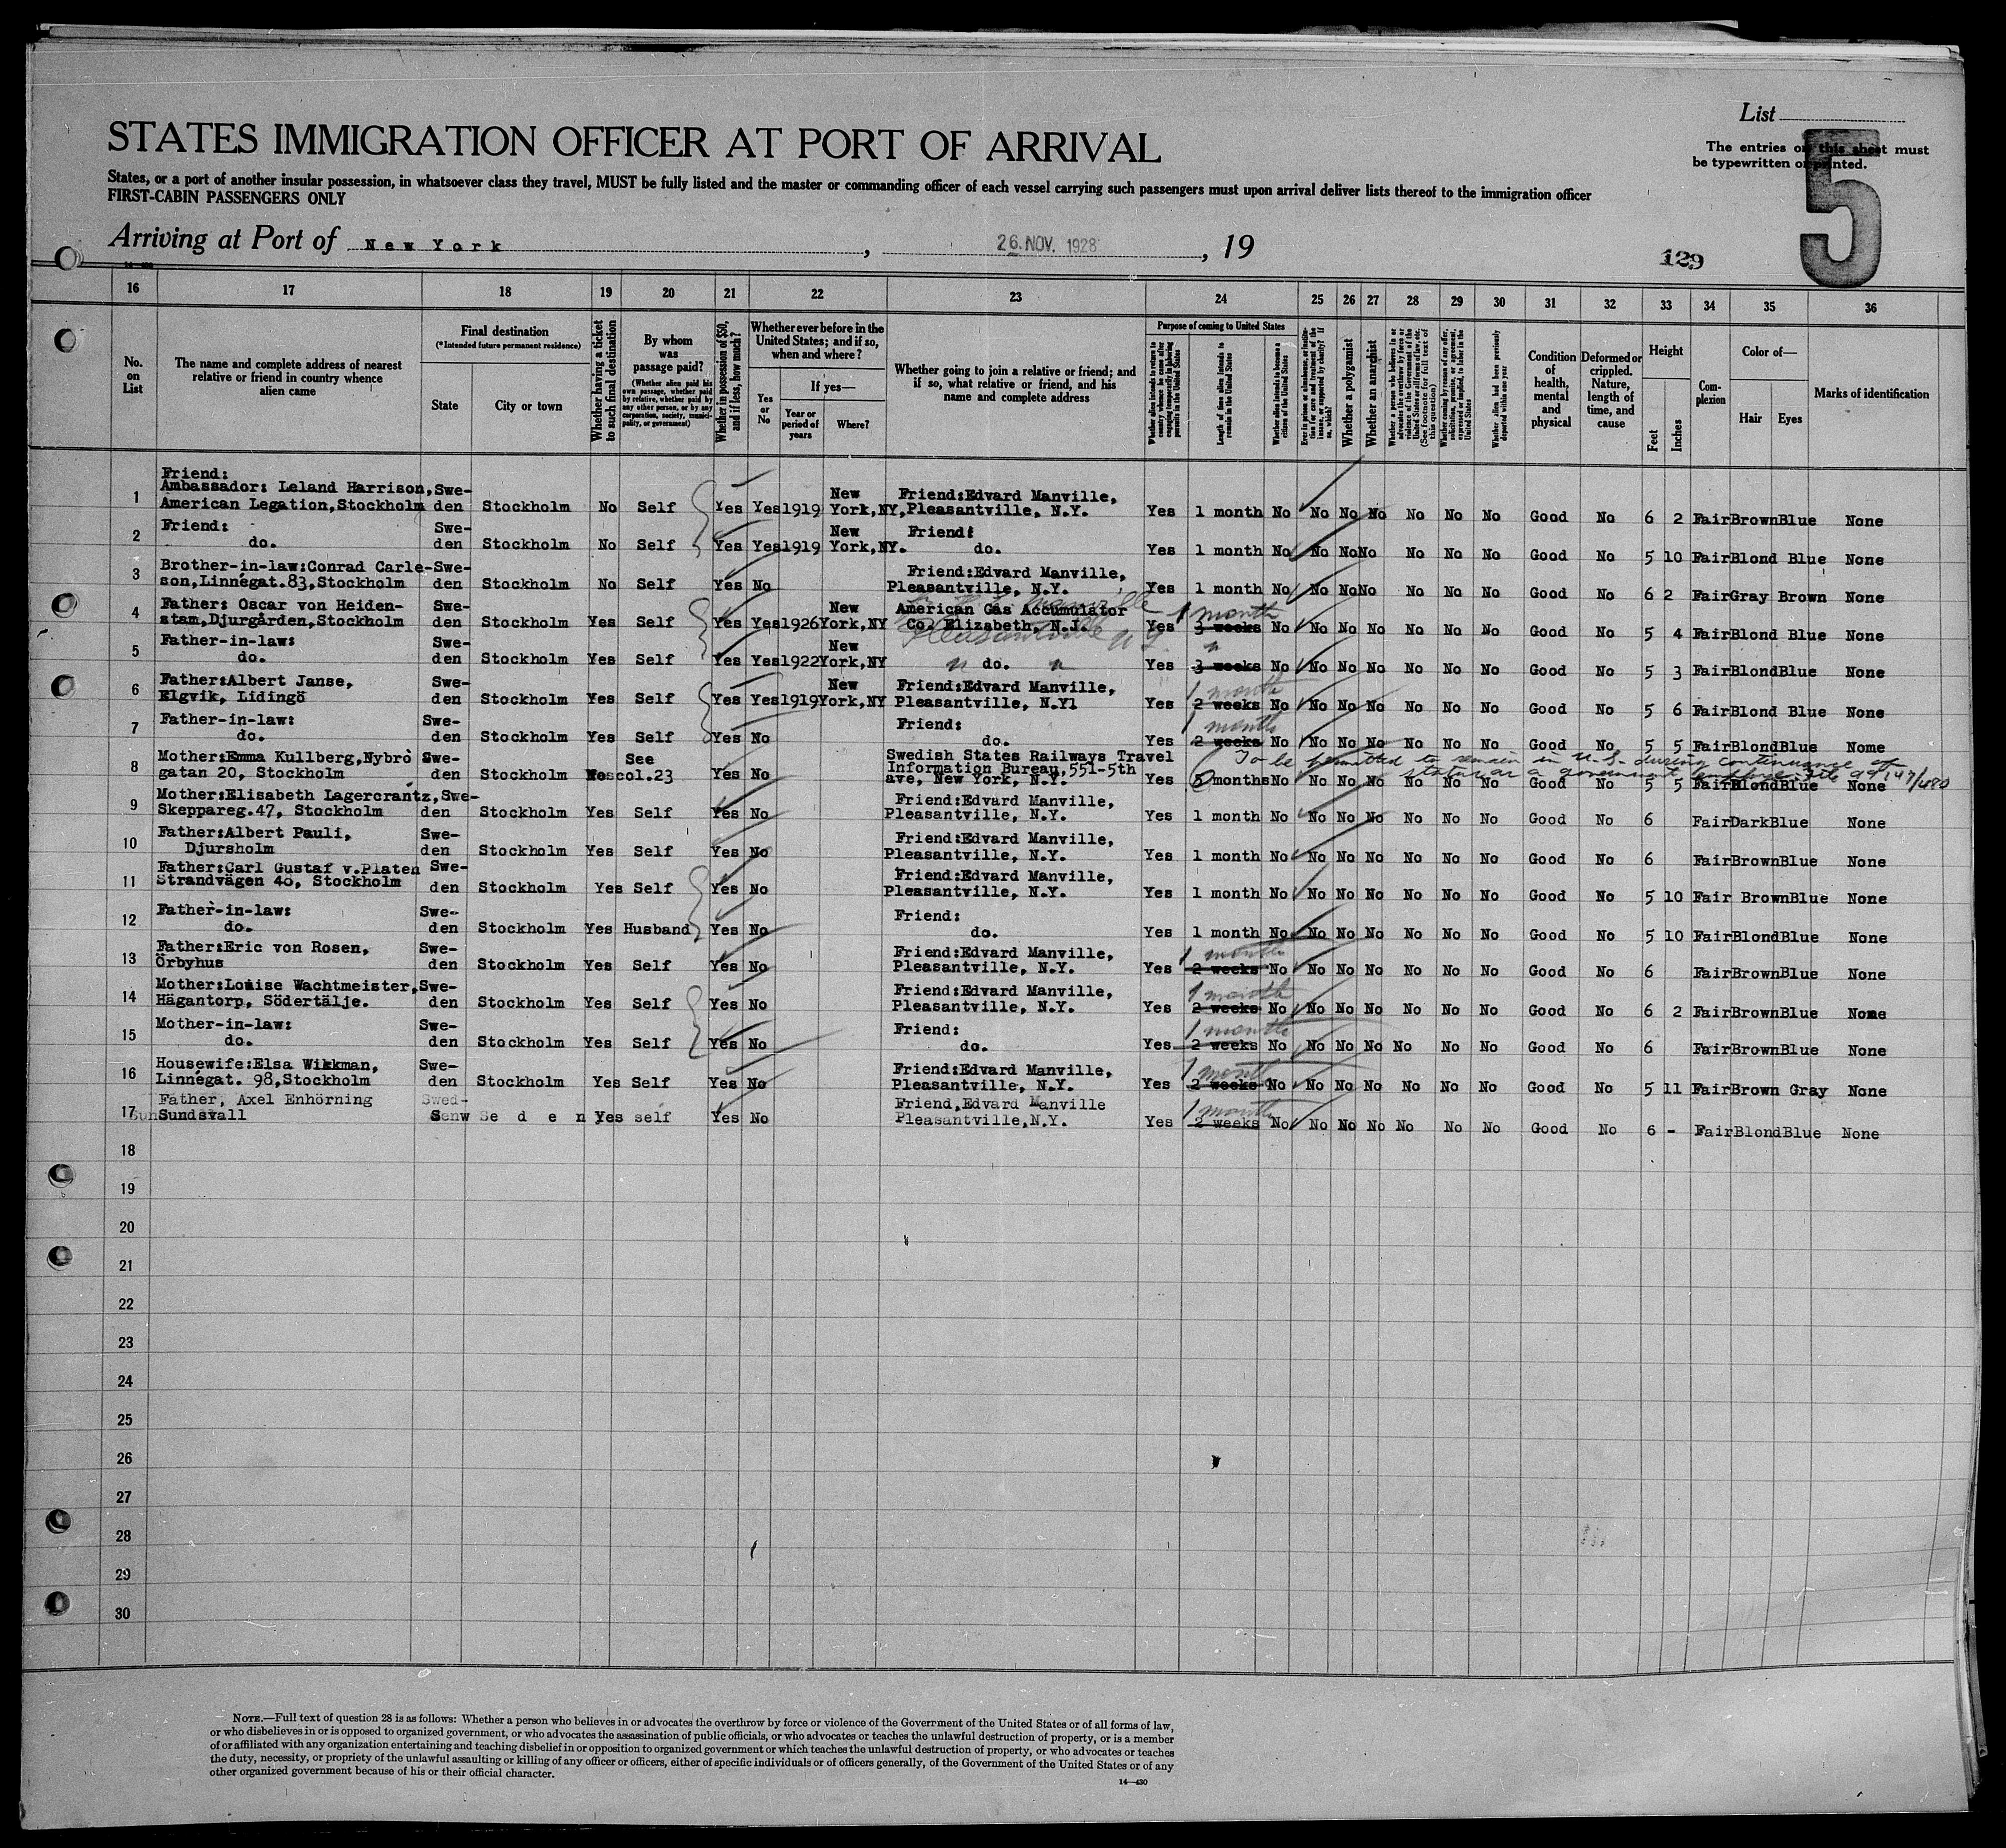 List
STATES IMMIGRATION OFFICER AT PORT OF ARRIVAL
The entries on this sheet must
be typewritten or printed.
5
States, or a port of another insular possession, in whatsoever class they travel, MUST be fully listed and the master or commanding officer of each vessel carrying such passengers must upon arrival deliver lists thereof to the immigration officer
FIRST-CABIN PASSENGERS ONLY
Arriving at Port of New York, 26. NOV. 1928, 19
129
16 17 18 19 20 21 22 23 24 25 26 27 28 29 30 31 32 33 34 35 36
No. on List
The name and complete address of nearest relative or friend in country whence alien came
Final destination
(*Intended future permanent residence)
State
City or town
Whether having a ticket to such final destination
By whom was passage paid?
(Whether alien paid his own passage, whether paid by relative, whether paid by any other person, or by any corporation, society, municipality, or government)
Whether in possession of $50, and if less, how much?
Whether ever before in the United States; and if so, when and where?
Yes or No
If yes—
Year or period of years
Where?
Whether going to join a relative or friend; and if so, what relative or friend, and his name and complete address
Purpose of coming to United States
Length of time alien intends to remain in the United States
Whether alien intends to become a citizen of the United States
Whether a polygamist
Whether an anarchist
Whether alien had been previously deported within one year
Condition of health, mental and physical
Deformed or crippled. Nature, length of time, and cause
Height
Feet
Inches
Complexion
Color of—
Hair
Eyes
Marks of identification
1 Friend: Ambassador: Leland Harrison, American Legation,Stockholm Swe-den Stockholm No Self Yes Yes 1919 New York,NY, Friend:Edvard Manville, Pleasantville, N.Y. Yes 1 month No No No No No No No Good No 6 2 Fair Brown Blue None
2 Friend: do. Swe-den Stockholm No Self Yes Yes 1919 New York,NY. Friend: do. Yes 1 month No No No No No No No Good No 5 10 Fair Blond Blue None
3 Brother-in-law:Conrad Carle-son,Linnégat.83,Stockholm Swe-den Stockholm No Self Yes No Friend:Edvard Manville, Pleasantville, N.Y. Yes 1 month No No No No No No No Good No 6 2 Fair Gray Brown None
4 Father: Oscar von Heiden-stam,Djurgården,Stockholm Swe-den Stockholm Yes Self Yes Yes 1926 New York,NY American Gas Accumulator Co. Elizabeth, N.J. Manville Pleasantville N.Y. Yes 3 weeks 1 month No No No No No No No Good No 5 4 Fair Blond Blue None
5 Father-in-law: do. Swe-den Stockholm Yes Self Yes Yes 1922 New York,NY " do. " Yes 3 weeks " No No No No No No No Good No 5 3 Fair Blond Blue None
6 Father:Albert Janse, Elgvik, Lidingö Swe-den Stockholm Yes Self Yes Yes 1919 New York,NY Friend:Edvard Manville, Pleasantville, N.Yl Yes 2 weeks 1 month No No No No No No No Good No 5 6 Fair Blond Blue None
7 Father-in-law: do. Swe-den Stockholm Yes Self Yes No Friend: do. Yes 2 weeks 1 month No No No No No No No Good No 5 5 Fair Blond Blue Nome
8 Mother:Emma Kullberg,Nybro gatan 20, Stockholm Swe-den Stockholm See col.23 Yes No Swedish States Railways Travel Information Bureau,551-5th ave, New York, N.Y. Yes 6 months No No No No No No No Good No 5 5 Fair Blond Blue None
To be permitted to remain in U.S. during continuance of
status as a government employee. File 99147/480
9 Mother:Elisabeth Lagercrantz, Skeppareg.47, Stockholm Swe-den Stockholm Yes Self Yes No Friend:Edvard Manville, Pleasantville, N.Y. Yes 1 month No No No No No No No Good No 6 Fair Dark Blue None
10 Father:Albert Pauli, Djursholm Swe-den Stockholm Yes Self Yes No Friend:Edvard Manville, Pleasantville, N.Y. Yes 1 month No No No No No No No Good No 6 Fair Brown Blue None
11 Father:Carl Gustaf v.Platen Strandvägen 48, Stockholm Swe-den Stockholm Yes Self Yes No Friend:Edvard Manville, Pleasantville, N.Y. Yes 1 month No No No No No No No Good No 5 10 Fair Brown Blue None
12 Father-in-law: do. Swe-den Stockholm Yes Husband Yes No Friend: do. Yes 1 month No No No No No No No Good No 5 10 Fair Blond Blue None
13 Father:Eric von Rosen, Örbyhus Swe-den Stockholm Yes Self Yes No Friend:Edvard Manville, Pleasantville, N.Y. Yes 2 weeks 1 month No No No No No No No Good No 6 Fair Brown Blue None
14 Mother:Louise Wachtmeister, Hägantorp, Södertälje. Swe-den Stockholm Yes Self Yes No Friend:Edvard Manville, Pleasantville, N.Y. Yes 2 weeks 1 month No No No No No No No Good No 6 2 Fair Brown Blue None
15 Mother-in-law: do. Swe-den Stockholm Yes Self Yes No Friend: do. Yes 2 weeks 1 month No No No No No No No Good No 6 Fair Brown Blue None
16 Housewife:Elsa Wikkman, Linnégat. 98,Stockholm Swe-den Stockholm Yes Self Yes No Friend:Edvard Manville, Pleasantville, N.Y. Yes 2 weeks 1 month No No No No No No No Good No 5 11 Fair Brown Gray None
17 Father, Axel Enhörning Sundsvall Swed- Yes self Yes No Friend,Edvard Manville Pleasantville,N.Y. Yes 2 weeks 1 month No No No No No No No Good No 6 - Fair Blond Blue None
18
19
20
21
22
23
24
25
26
27
28
29
30
NOTE.—Full text of question 28 is as follows: Whether a person who believes in or advocates the overthrow by force or violence of the Government of the United States or of all forms of law,
or who disbelieves in or is opposed to organized government, or who advocates the assassination of public officials, or who advocates or teaches the unlawful destruction of property, or is a member
of or affiliated with any organization entertaining and teaching disbelief in or opposition to organized government or which teaches the unlawful destruction of property, or who advocates or teaches
the duty, necessity, or propriety of the unlawful assaulting or killing of any officer or officers, either of specific individuals or of officers generally, of the Government of the United States or of any
other organized government because of his or their official character.
14—430